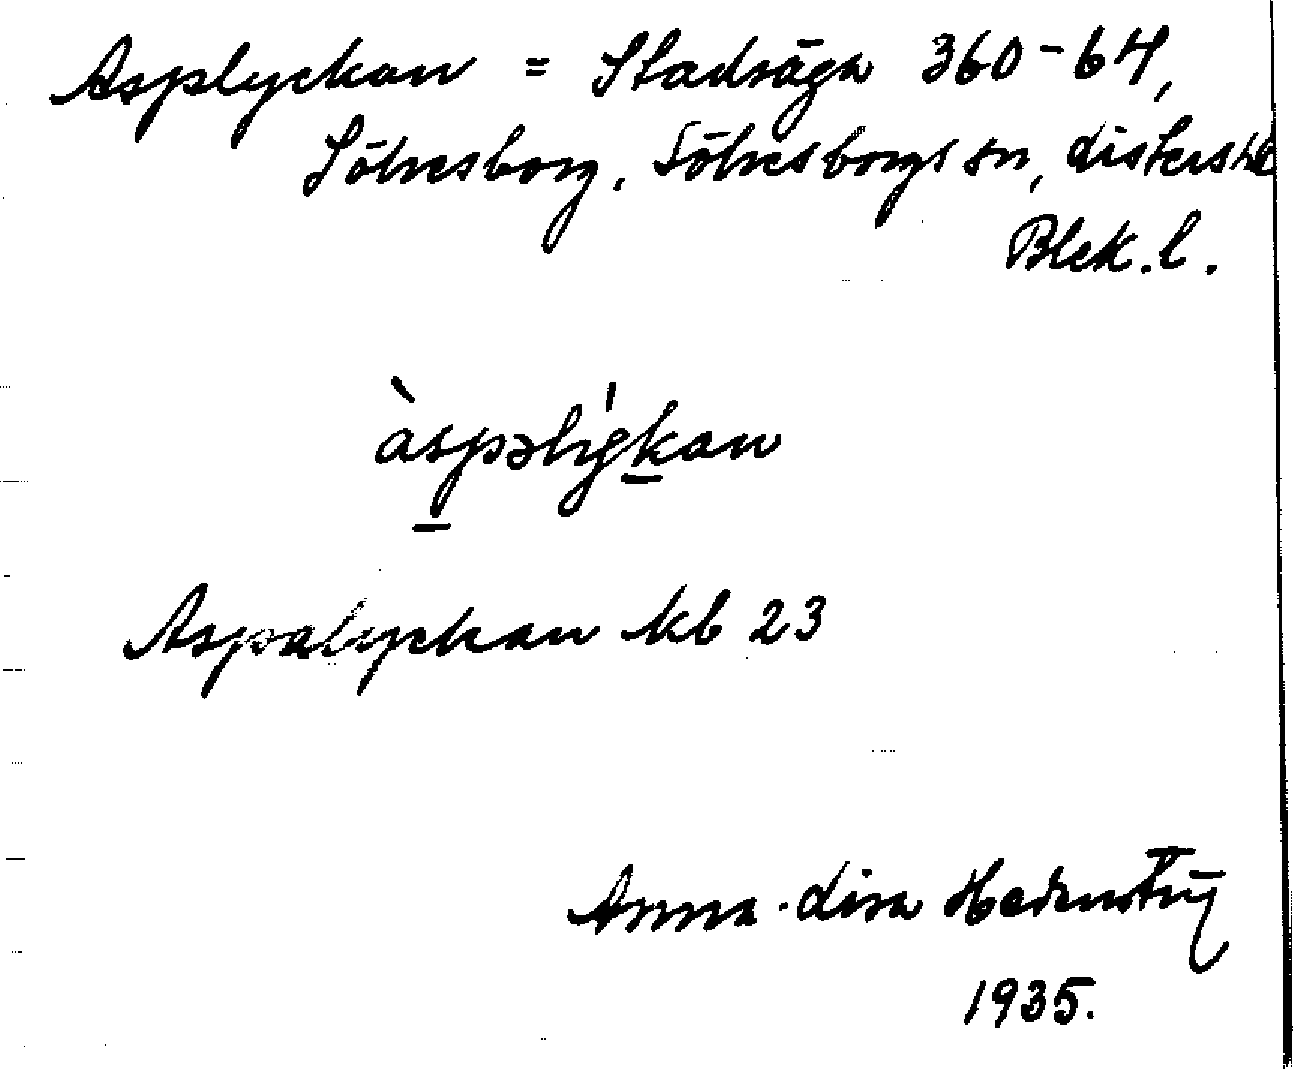 Asplyckan = Stadsäga 360-64,
Sölvesborg, Sölvesborgs sn, Listers hd
Blek. l.
àspəlyҁ́kan
Aspalyckan kb 23
Anna-Lisa
1935.